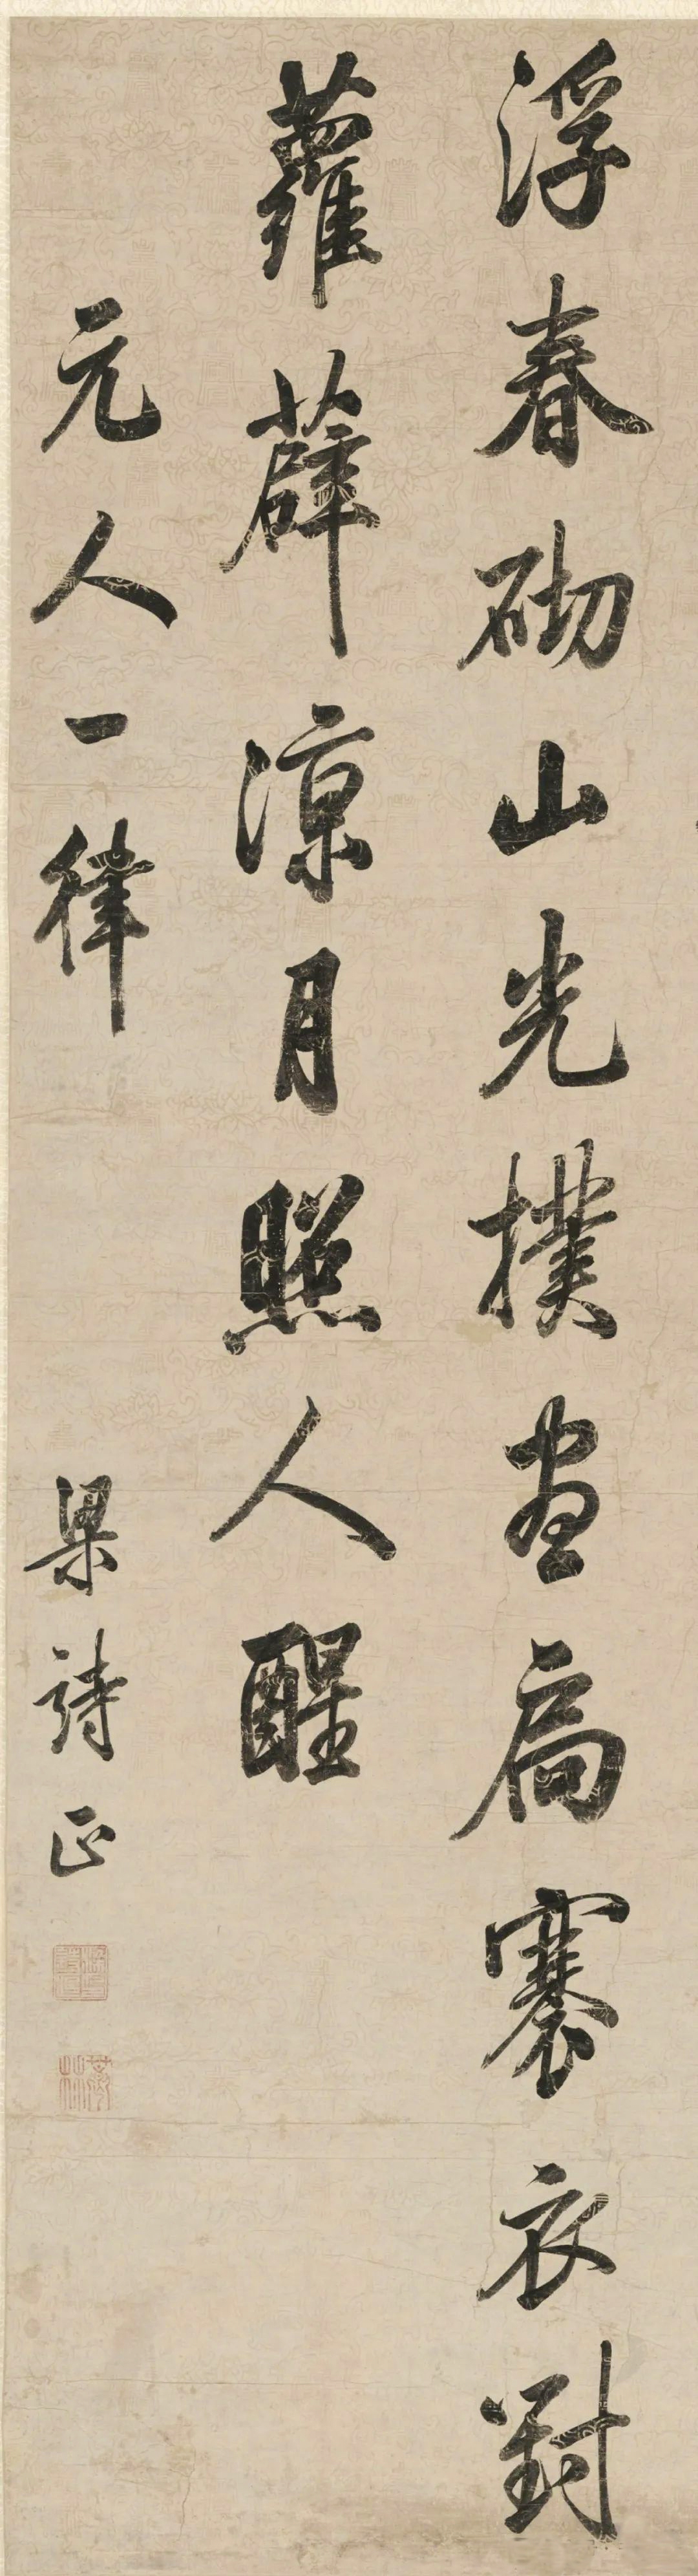 浮春砌山光撲畫扃褰衣對
蘿薜涼月照人醒
元人一律
梁詩正